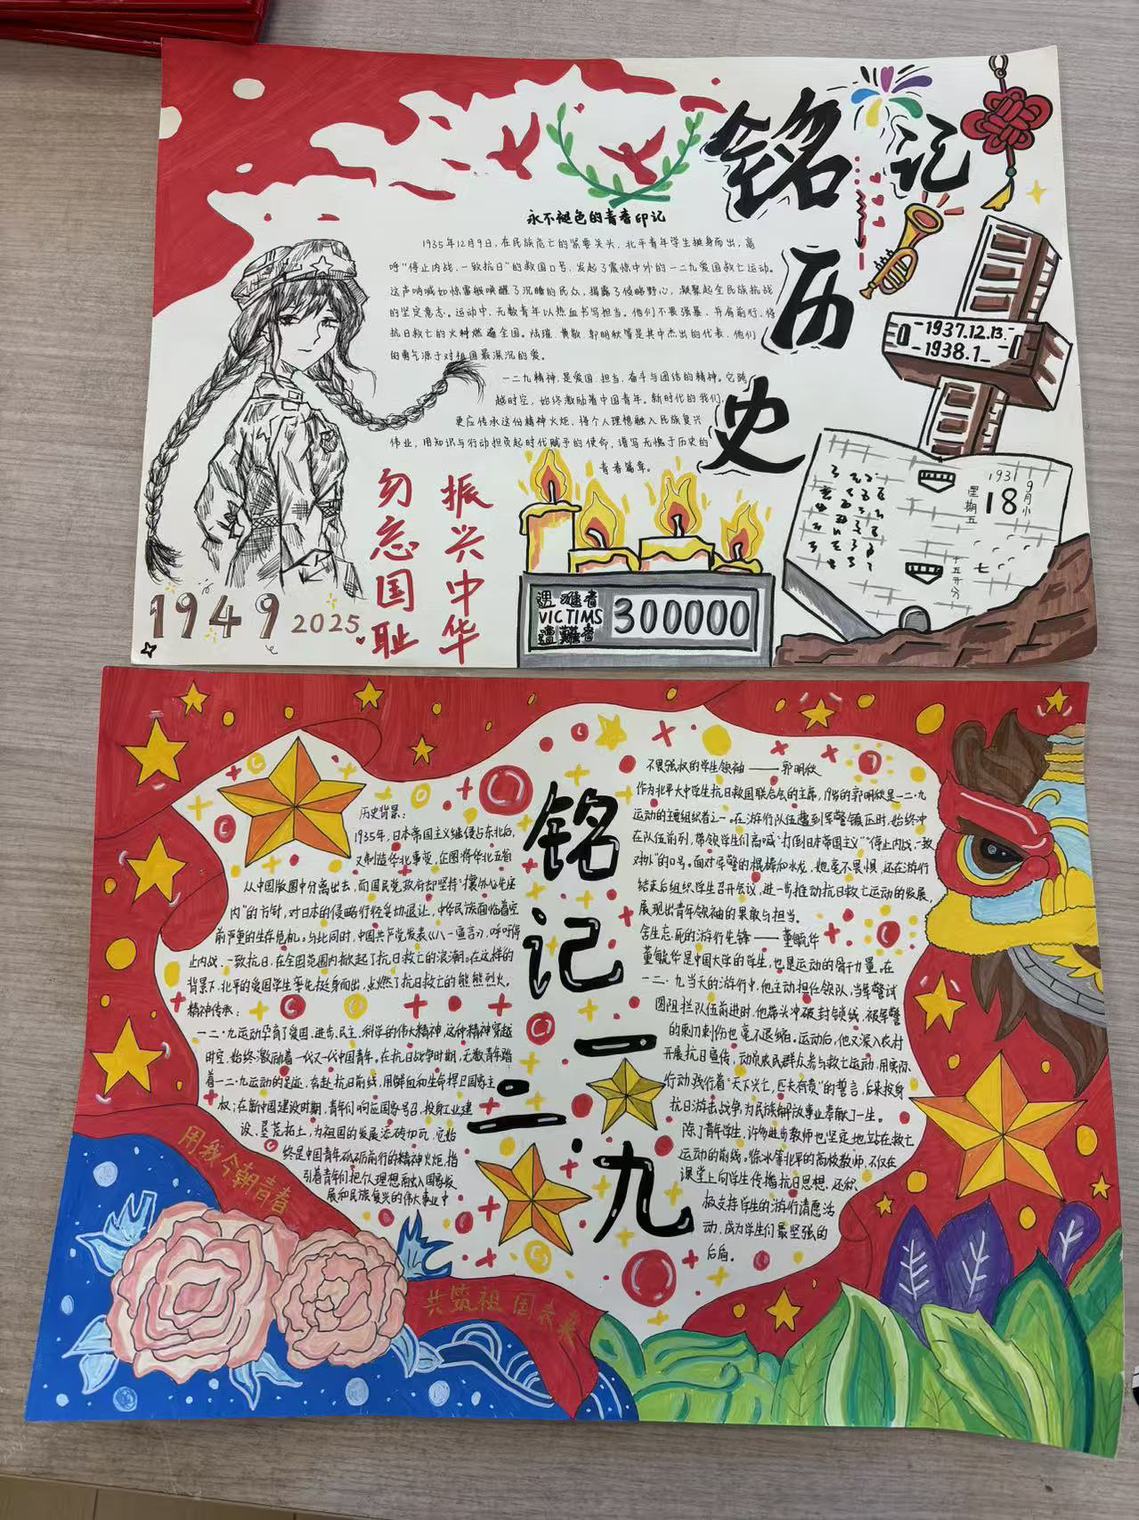 铭记
历
史
永不褪色的青春印记
1935年12月9日，在民族危亡的紧要关头，北平青年学生挺身而出，高
呼“停止内战，一致抗日”的救国口号，发起了震惊中外的一二九爱国救亡运动。
这声呐喊如惊雷般唤醒了沉睡的民众，揭露了侵略野心，凝聚起全民族抗战
的坚定意志。运动中，无数青年以热血书写担当。他们不畏强暴、并肩前行，将
抗日救亡的火种燃遍全国。陆璀、黄敬、郭明秋等是其中杰出的代表，他们
的勇气源于对祖国最深沉的爱。
一二九精神，是爱国、担当、奋斗与团结的精神。它跨
越时空，始终激励着中国青年。新时代的我们，
更应传承这份精神火炬，将个人理想融入民族复兴
伟业，用知识与行动担负起时代赋予的使命，谱写无愧于历史的
青春篇章。
振兴中华
勿忘国耻
1949 2025
遇难者
VICTIMS
遭難者
300000
-1937.12.13.-
-1938.1-
1931
9月小
18
星期五
铭记一二·九
历史背景：
1935年，日本帝国主义继侵占东北后，
又制造华北事变，企图将华北五省
从中国版图中分离出去，而国民党政府却坚持“攘外必先安
内”的方针，对日本的侵略行径妥协退让，中华民族面临着空
前严重的生存危机。与此同时，中国共产党发表《八一宣言》，呼吁停
止内战、一致抗日，在全国范围内掀起了抗日救亡的浪潮。在这样的
背景下，北平的爱国学生率先挺身而出，点燃了抗日救亡的熊熊烈火。
精神传承：
一二·九运动孕育了爱国、进步、民主、科学的伟大精神，这种精神穿越
时空，始终激励着一代又一代中国青年。在抗日战争时期，无数青年踏
着一二·九运动的足迹，奔赴抗日前线，用鲜血和生命捍卫国家主
权；在新中国建设时期，青年们响应国家号召，投身工业建
设、垦荒拓土，为祖国的发展添砖加瓦。它始
终是中国青年砥砺前行的精神火炬，指
引着青年们把个人理想融入国家发
展和民族复兴的伟大事业中
不畏强权的学生领袖——郭明秋
作为北平大中学生抗日救国联合会的主席，19岁的郭明秋是一二·九
运动的主要组织者之一。在游行队伍遭到军警镇压时，她始终冲
在队伍前列，带领学生们高喊“打倒日本帝国主义”“停止内战，一致
对外”的口号。面对军警的棍棒和水龙，她毫不畏惧，还在游行
结束后组织学生召开会议，进一步推动抗日救亡运动的发展，
展现出青年领袖的果敢与担当。
舍生忘死的游行先锋——董毓华
董毓华是中国大学的学生，也是运动的骨干力量。在
一二·九当天的游行中，他主动担任领队，当军警试
图阻拦队伍前进时，他带头冲破封锁线，被军警
的刺刀刺伤也毫不退缩。运动后，他又深入农村
开展抗日宣传，动员农民群众参与救亡运动，用实际
行动践行着“天下兴亡，匹夫有责”的誓言，后来投身
抗日游击战争，为民族解放事业奉献了一生。
除了青年学生，许多进步教师也坚定地站在救亡
运动的前线。徐冰等北平的高校教师，不仅在
课堂上向学生传播抗日思想，还积
极支持学生的游行请愿活
动，成为学生们最坚强的
后盾。
用我今朝青春
共筑祖国未来